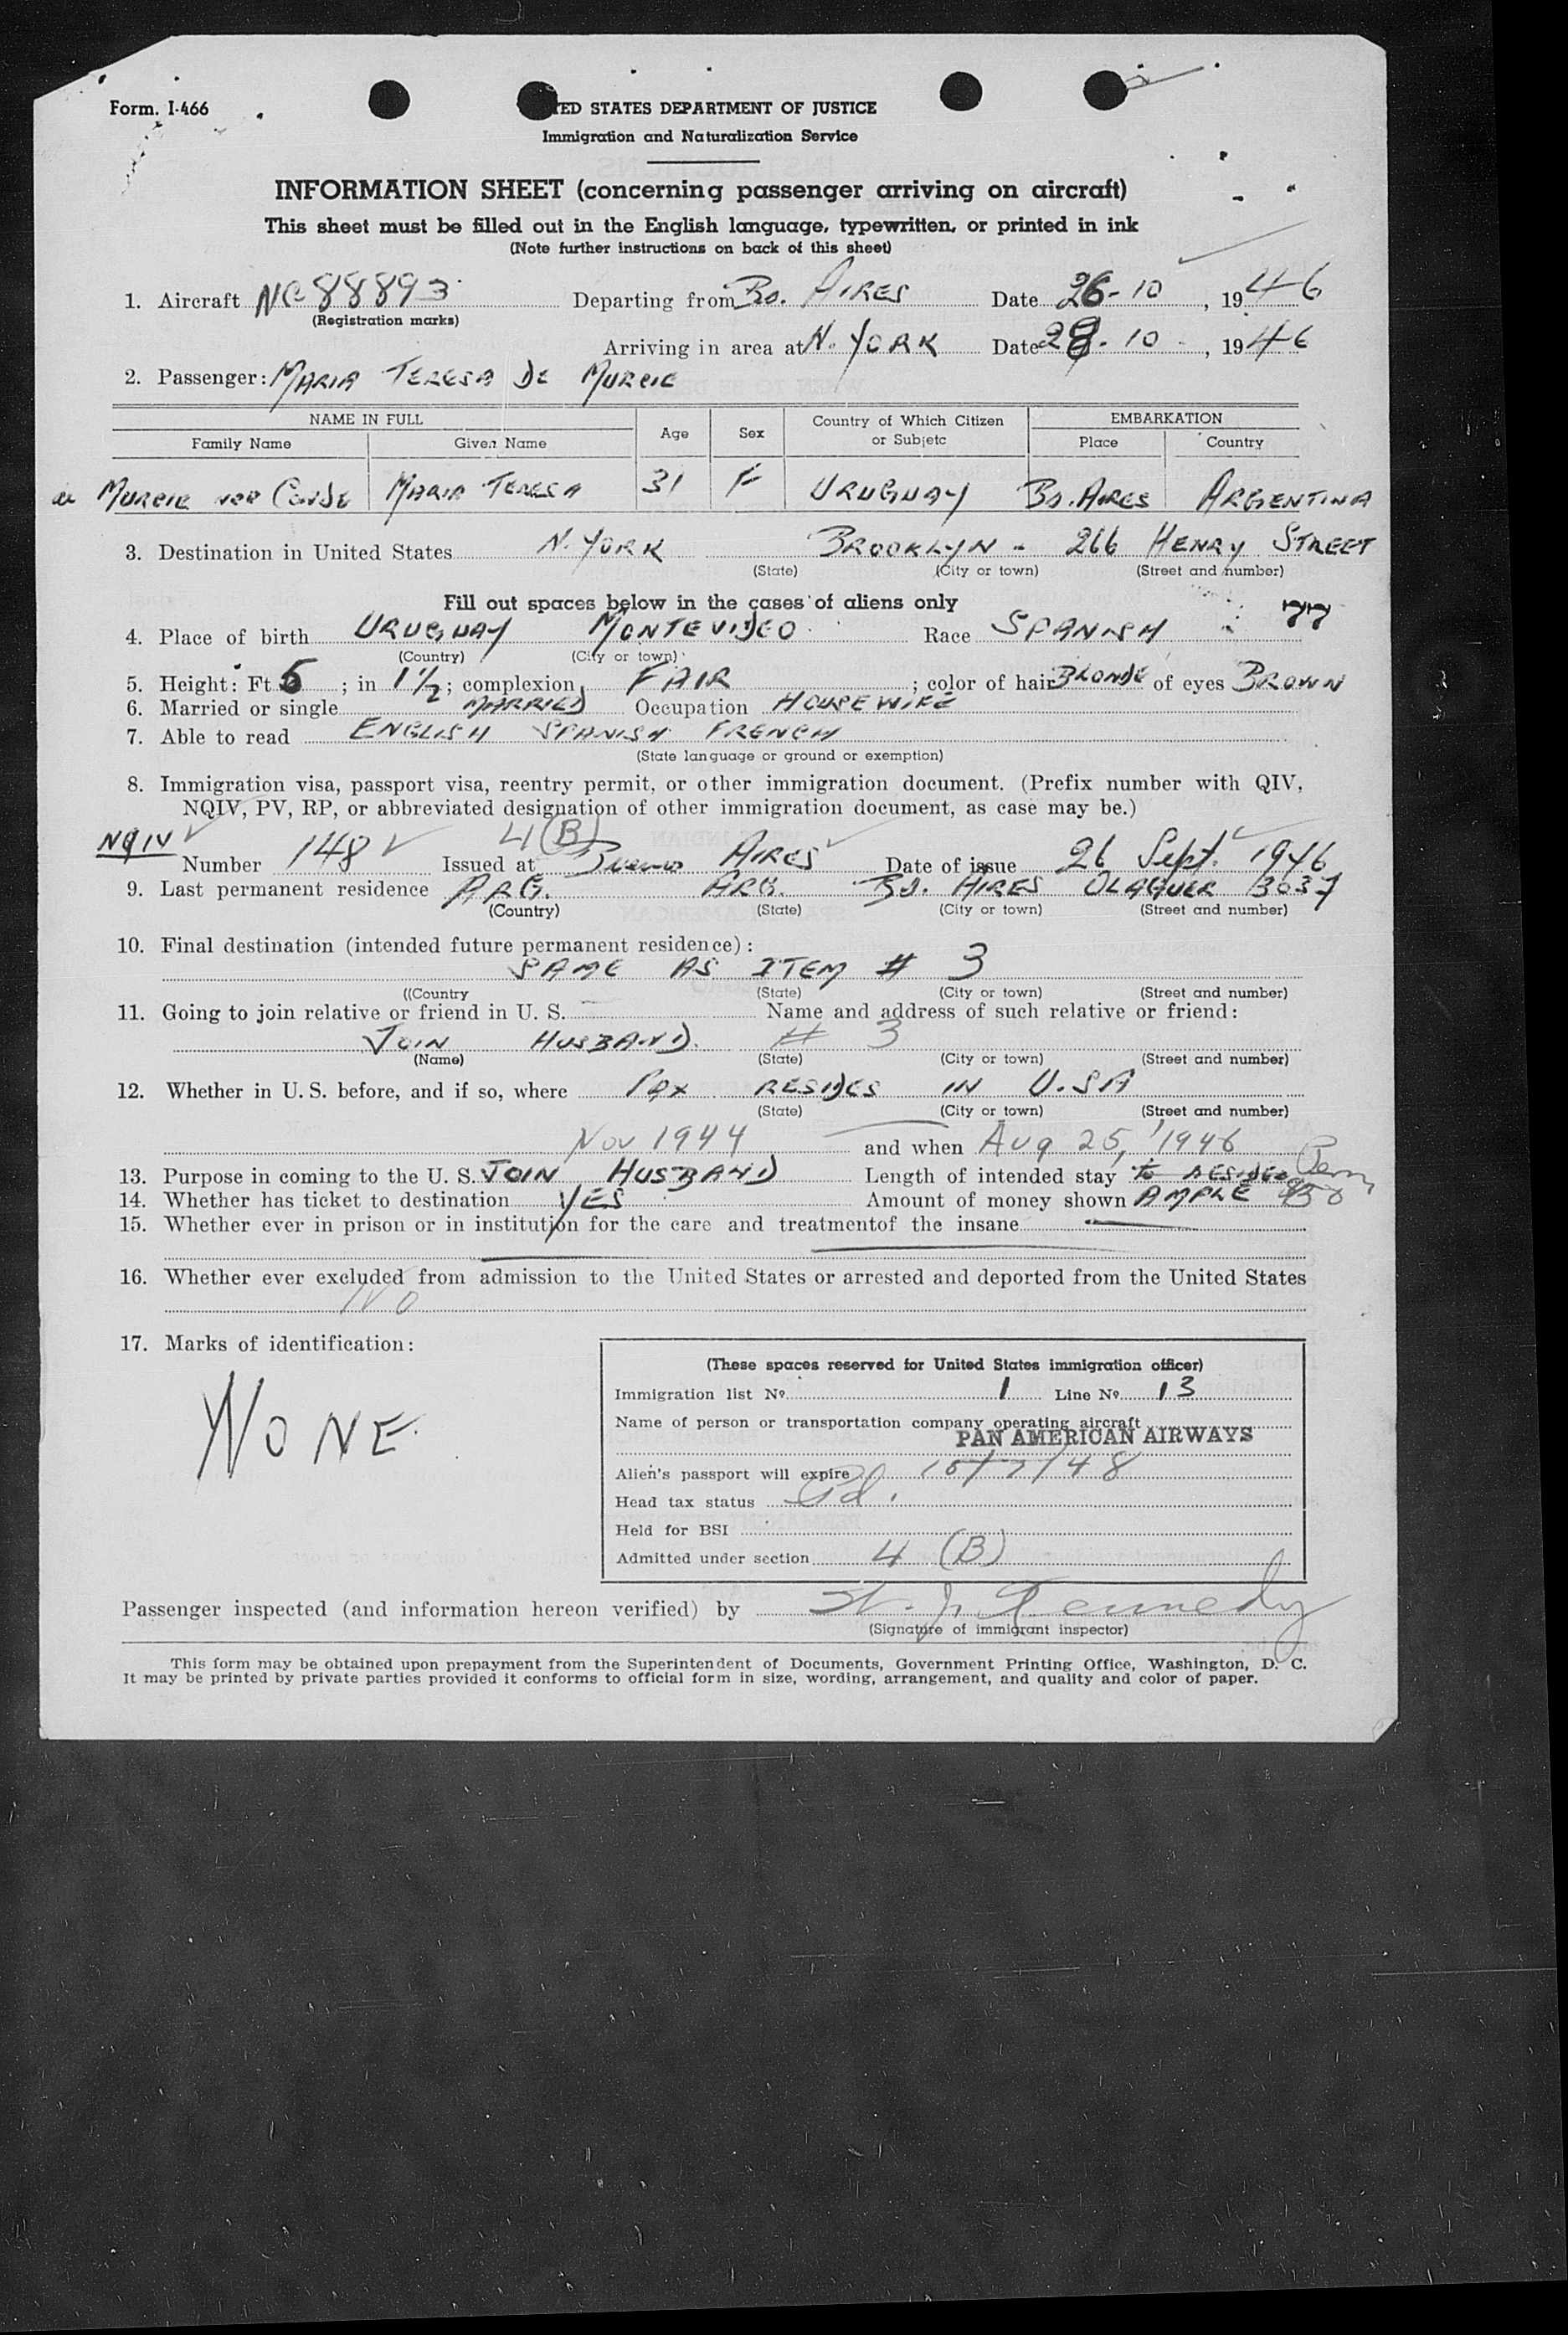 Form. I-466
TED STATES DEPARTMENT OF JUSTICE
Immigration and Naturalization Service
INFORMATION SHEET (concerning passenger arriving on aircraft)
This sheet must be filled out in the English language, typewritten, or printed in ink
(Note further instructions on back of this sheet)
1. Aircraft NC 88893 Departing from Bs. AIRES Date 26-10, 1946
(Registration marks)
Arriving in area at N. YORK Date 28-10-, 1946
2. Passenger: MARIA TERESA DE MURCIE
NAME IN FULL Age Sex Country of Which Citizen or Subjetc EMBARKATION
Family Name Given Name Place Country
de MURCIE NEE CONDE MARIA TERESA 31 F URUGUAY Bs. AIRES ARGENTINA
3. Destination in United States N. YORK BROOKLYN - 266 HENRY STREET
(State) (City or town) (Street and number)
Fill out spaces below in the cases of aliens only
4. Place of birth URUGUAY MONTEVIDEO Race SPANISH 77
(Country) (City or town)
5. Height: Ft 5; in 1 1/2; complexion FAIR; color of hair BLONDE of eyes BROWN
6. Married or single MARRIED Occupation HOUSEWIFE
7. Able to read ENGLISH SPANISH FRENCH
(State language or ground or exemption)
8. Immigration visa, passport visa, reentry permit, or other immigration document. (Prefix number with QIV,
NQIV, PV, RP, or abbreviated designation of other immigration document, as case may be.)
4(B)
NQIV Number 148 Issued at Buenos AIRES Date of issue 26 Sept. 1946
9. Last permanent residence ARG. ARG. Bs. AIRES OLAGUER 3037
(Country) (State) (City or town) (Street and number)
10. Final destination (intended future permanent residence):
SAME AS ITEM # 3
((Country (State) (City or town) (Street and number)
11. Going to join relative or friend in U. S. Name and address of such relative or friend:
JOIN HUSBAND. # 3
(Name) (State) (City or town) (Street and number)
12. Whether in U. S. before, and if so, where Pax RESIDES IN U.SA
(State) (City or town) (Street and number)
Nov 1944 and when Aug 25, 1946
13. Purpose in coming to the U. S. JOIN HUSBAND Length of intended stay to RESIDE Perm
14. Whether has ticket to destination YES Amount of money shown AMPLE
15. Whether ever in prison or in institution for the care and treatmentof the insane
16. Whether ever excluded from admission to the United States or arrested and deported from the United States
No
17. Marks of identification:
NONE
(These spaces reserved for United States immigration officer)
Immigration list Nº 1 Line Nº 13
Name of person or transportation company operating aircraft
PAN AMERICAN AIRWAYS
Alien's passport will expire 10/7/48
Head tax status Pd.
Held for BSI
Admitted under section 4 (B)
Passenger inspected (and information hereon verified) by J. Kennedy
(Signature of immigrant inspector)
This form may be obtained upon prepayment from the Superintendent of Documents, Government Printing Office, Washington, D. C.
It may be printed by private parties provided it conforms to official form in size, wording, arrangement, and quality and color of paper.